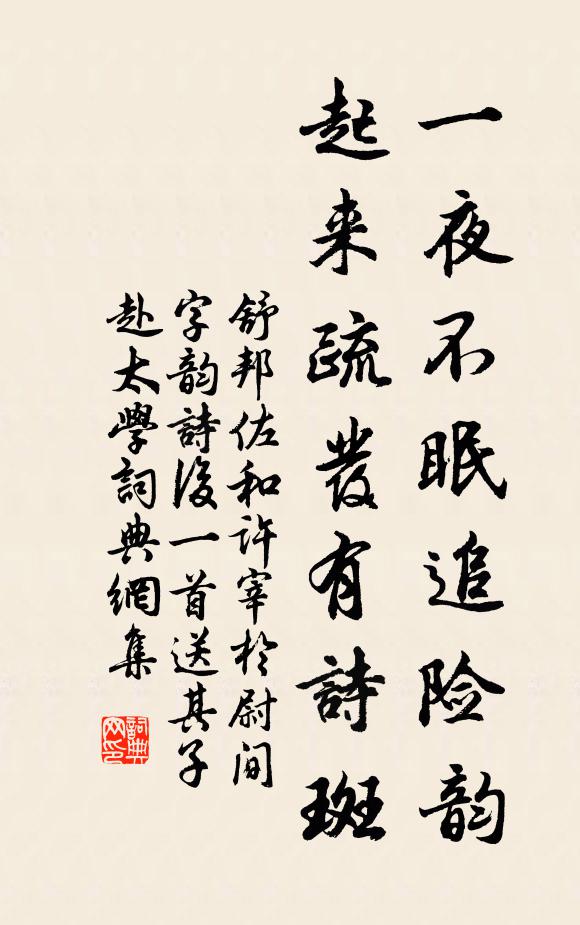 一夜不眠追险韵
起来疏发有詩斑
舒邦佐和许宰於尉间
字韵詩後一首送其子
赴太學詞典網集
詞典网印